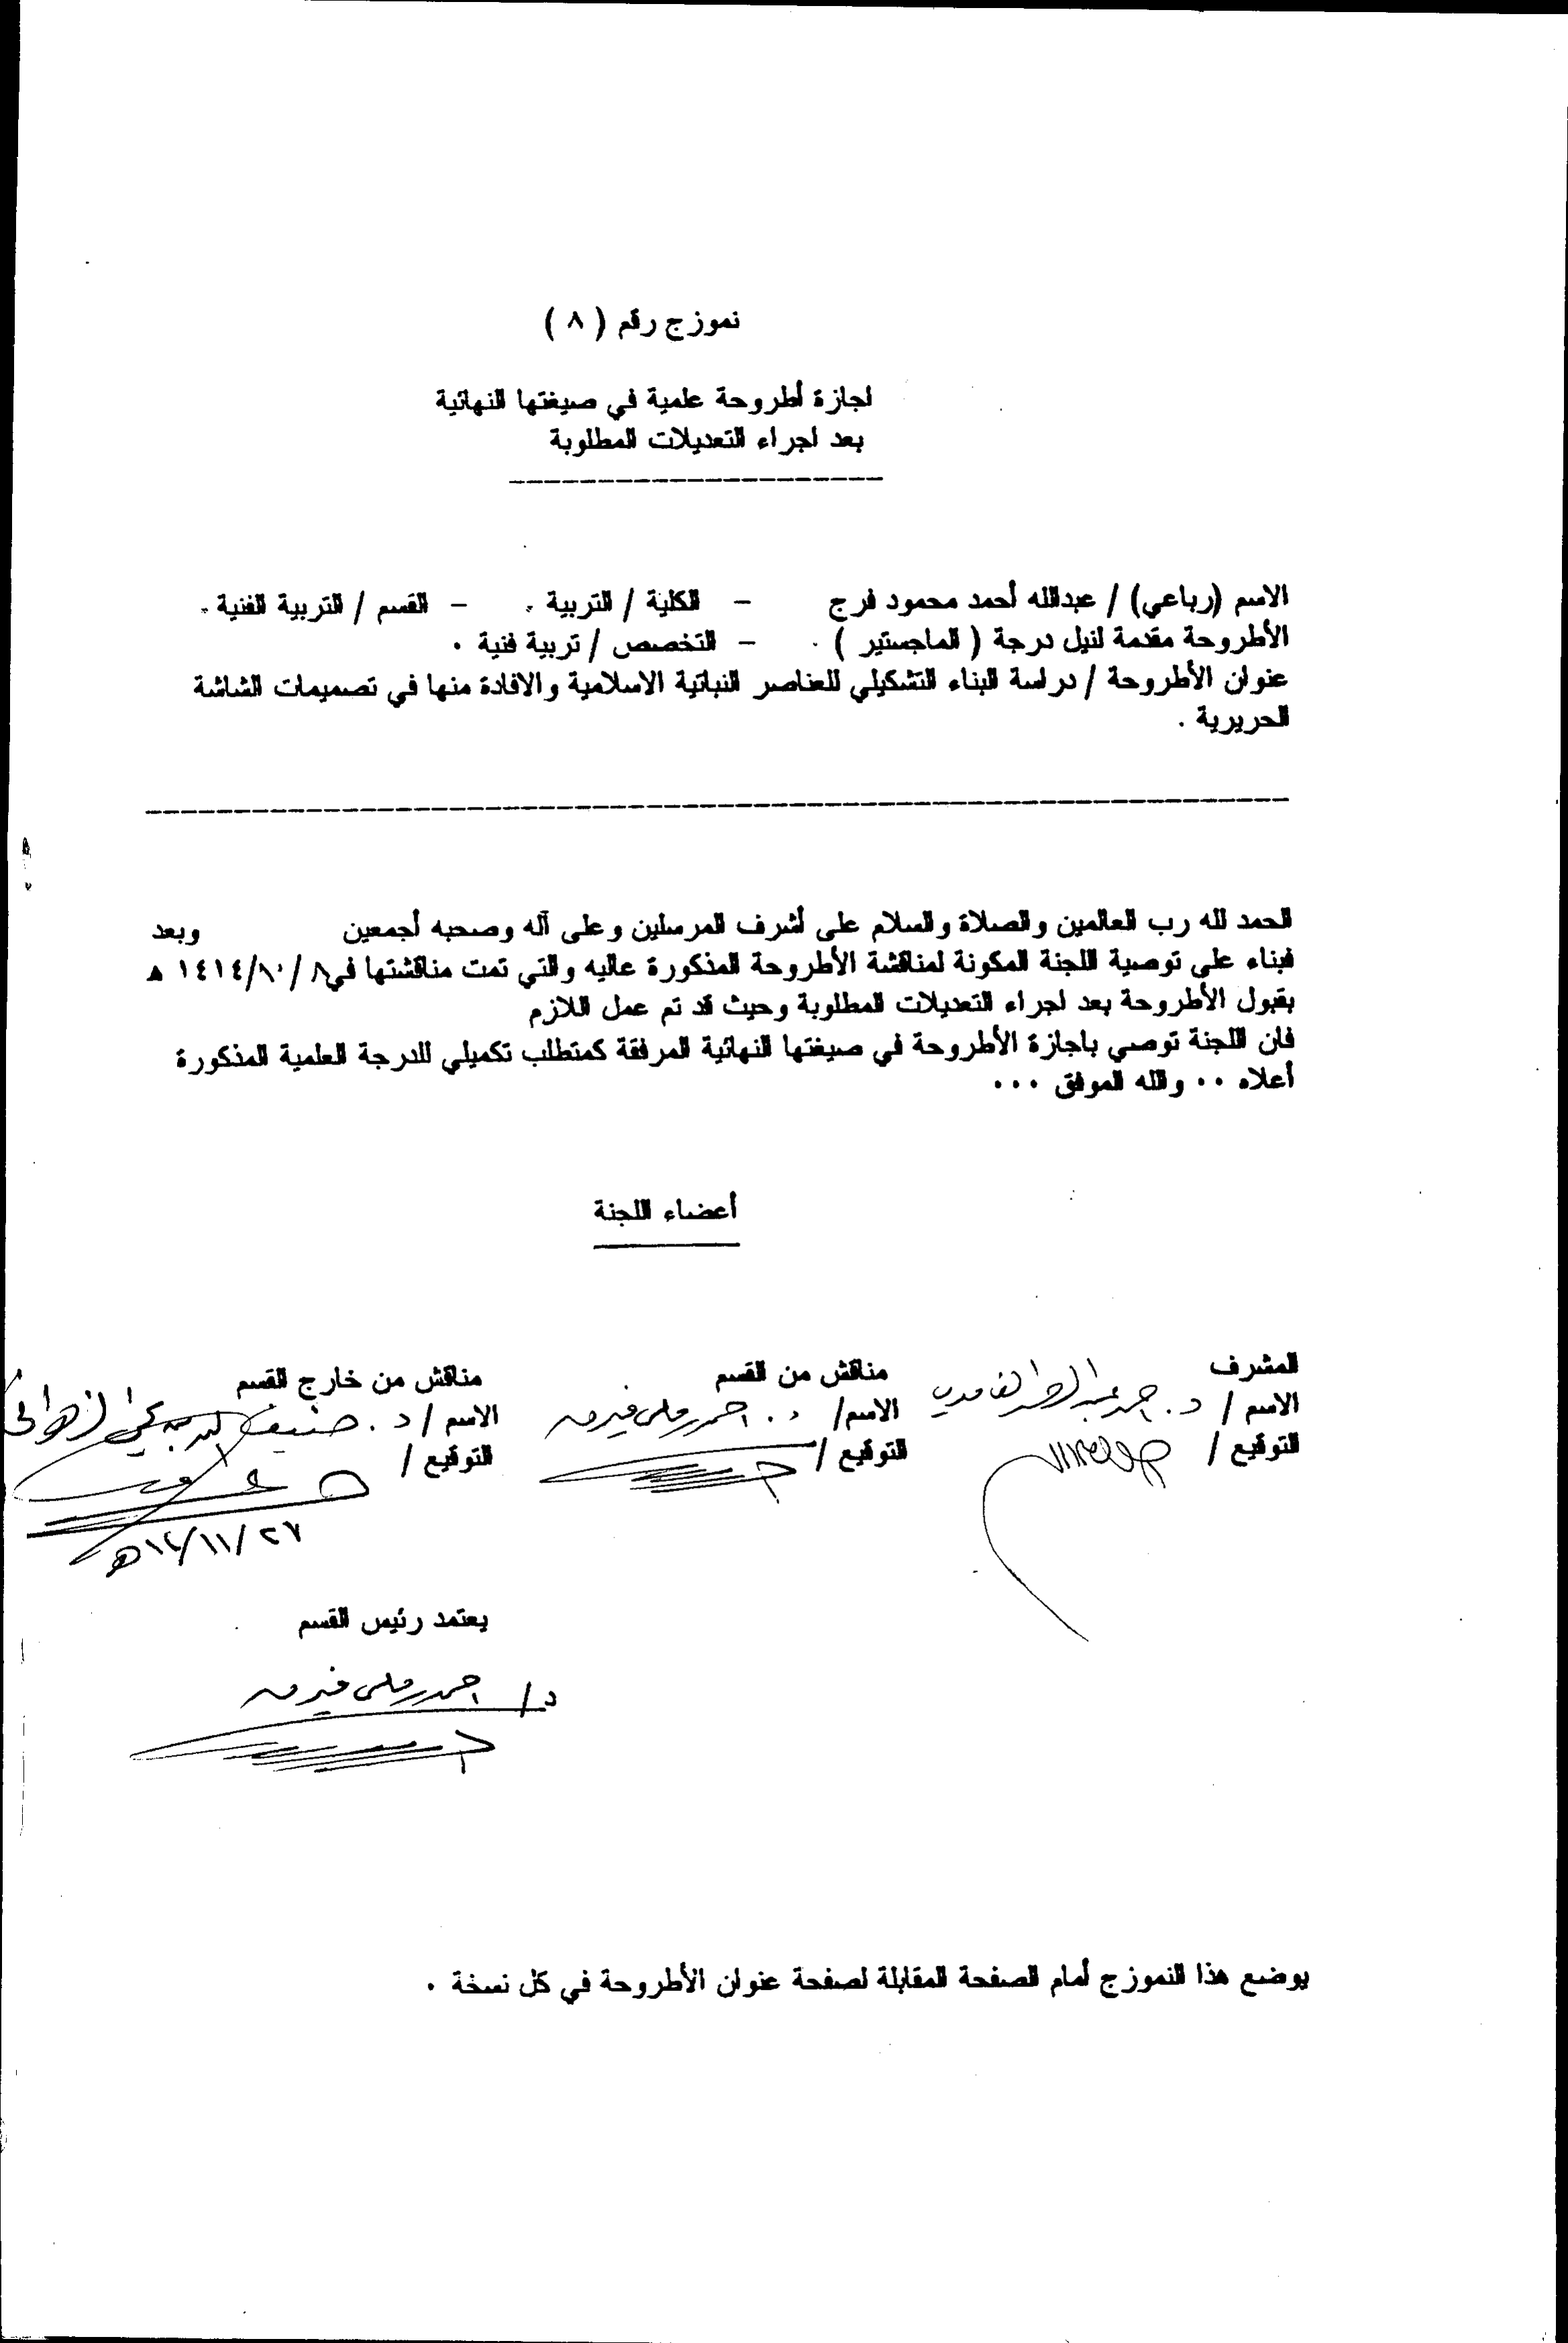 نموزج رقم ( ٨ )
اجازة أطروحة علمية في صيغتها النهائية
بعد اجراء التعديلات المطلوبة
الاسم (رباعي) / عبدالله أحمد محمود فرج – الكلية / التربية . – القسم / التربية الفنية .
الأطروحة مقدمة لنيل درجة ( الماجستير ) . – التخصص / تربية فنية .
عنوان الأطروحة / دراسة البناء التشكيلي للعناصر النباتية الاسلامية والافادة منها في تصميمات الشاشة
الحريرية .
الحمد لله رب العالمين والصلاة والسلام على أشرف المرسلين وعلى آله وصحبه أجمعين وبعد
فبناء على توصية اللجنة المكونة لمناقشة الأطروحة المذكورة عاليه والتي تمت مناقشتها في ٨ / ١٠/ ١٤١٤ ه
بقبول الأطروحة بعد اجراء التعديلات المطلوبة وحيث قد تم عمل اللازم
فان اللجنة توصي باجازة الأطروحة في صيغتها النهائية المرفقة كمتطلب تكميلي للدرجة العلمية المذكورة
أعلاه ٠٠ والله الموفق ٠٠٠
أعضاء اللجنة
المشرف مناقش من القسم مناقش من خارج القسم
الاسم / د. عبد الغامدي الاسم/ د. احمد فيرق الاسم / د.
التوقيع / التوقيع / التوقيع /
٢٧ /١١/ ١٤ه
يعتمد رئيس القسم
د/ احمد
يوضع هذا النموزج أمام الصفحة المقابلة لصفحة عنوان الأطروحة في كل نسخة .